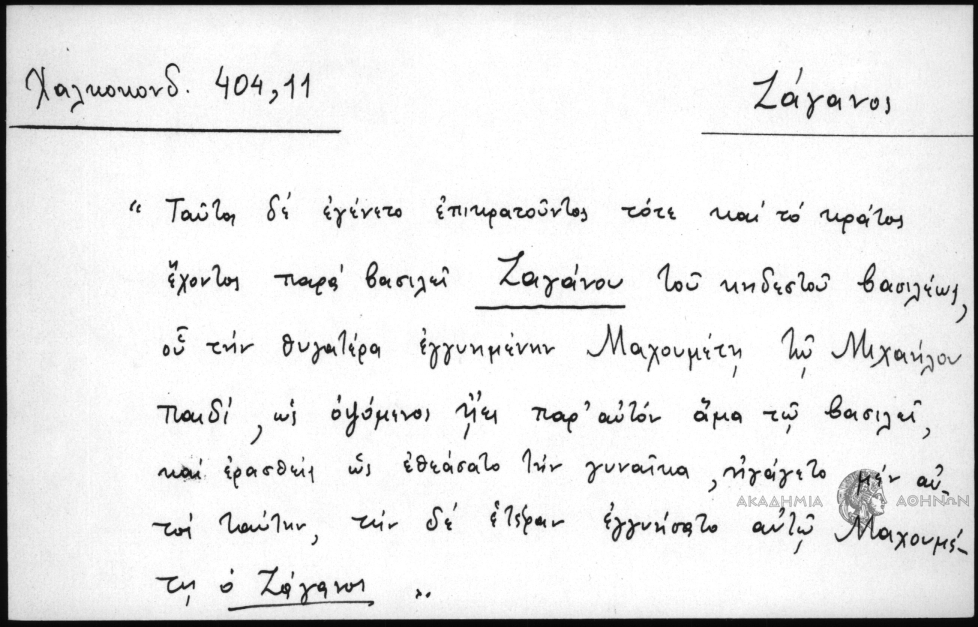 Χαλκοκονδ. 404,11
Ζάγανος
“ Ταῦτα δέ ἐγένετο ἐπικρατοῦντος τότε καί τό κράτος
ἔχοντος παρά βασιλεῖ Ζαγάνου τοῦ κηδεστοῦ βασιλέως,
οὗ τήν θυγατέρα ἐγγυημένην Μαχουμέτῃ τῷ Μιχαήλου
παιδί, ὡς ὀψόμενος ᾔει παρ' αὐτόν ἅμα τῷ βασιλεῖ,
καί ἐρασθείς ὡς ἐθεάσατο τήν γυναῖκα, ἠγάγετο μέν αὐ-
τός ταύτην, τήν δέ ἑτέραν ἐγγυήσατο αὐτῷ Μαχουμέ-
τῃ ὁ Ζάγανος ”.
ΑΚΑΔΗΜΙΑ ΑΘΗΝΩΝ